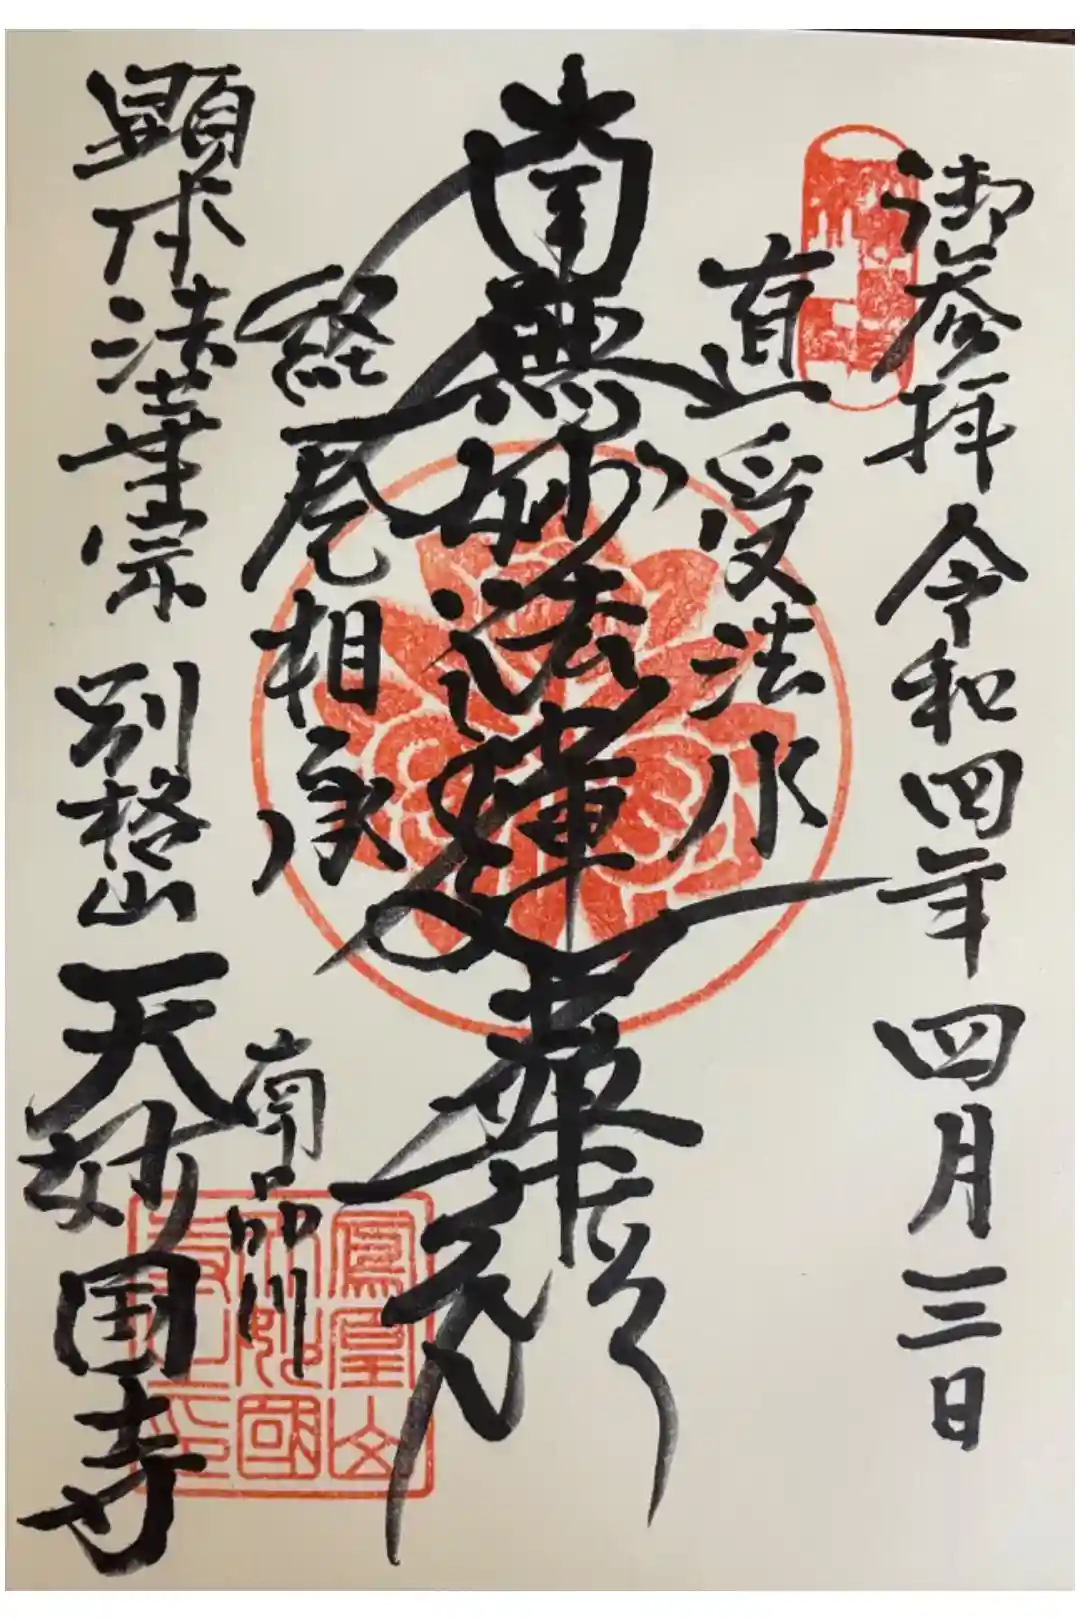 御参拝 令和四年 四月三日
直受法水
南無妙法蓮華経
経巻相承
南品川
顕本法華宗 別格山 天妙国寺
鳳凰山
妙國